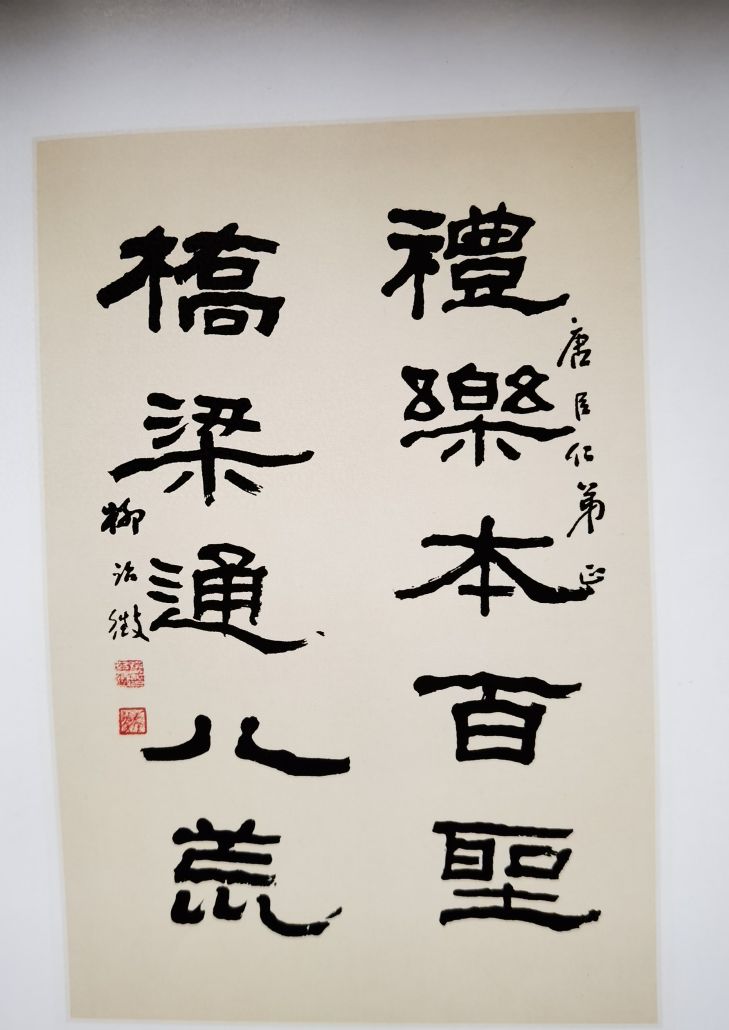 禮樂本百聖
唐臣仁弟正
橋梁通八荒
柳詒徵